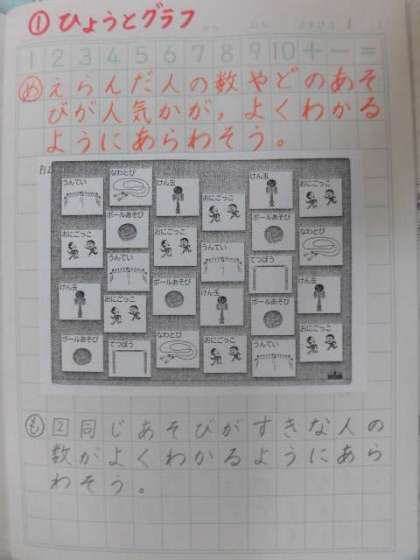 ①ひょうとグラフ
1 2 3 4 5 6 7 8 9 10 + − =
め えらんだ人の数やどのあそ
びが人気かが,よくわかる
ようにあらわそう。
うんてい なわとび けん玉 おにごっこ けん玉 おにごっこ
おにごっこ ボールあそび おにごっこ うんてい ボールあそび なわとび
けん玉 うんてい ボールあそび けん玉 てつぼう けん玉
ボールあそび おにごっこ なわとび おにごっこ ボールあそび おにごっこ
てつぼう うんてい
も 2 同じあそびがすきな人の
数がよくわかるようにあら
わそう。